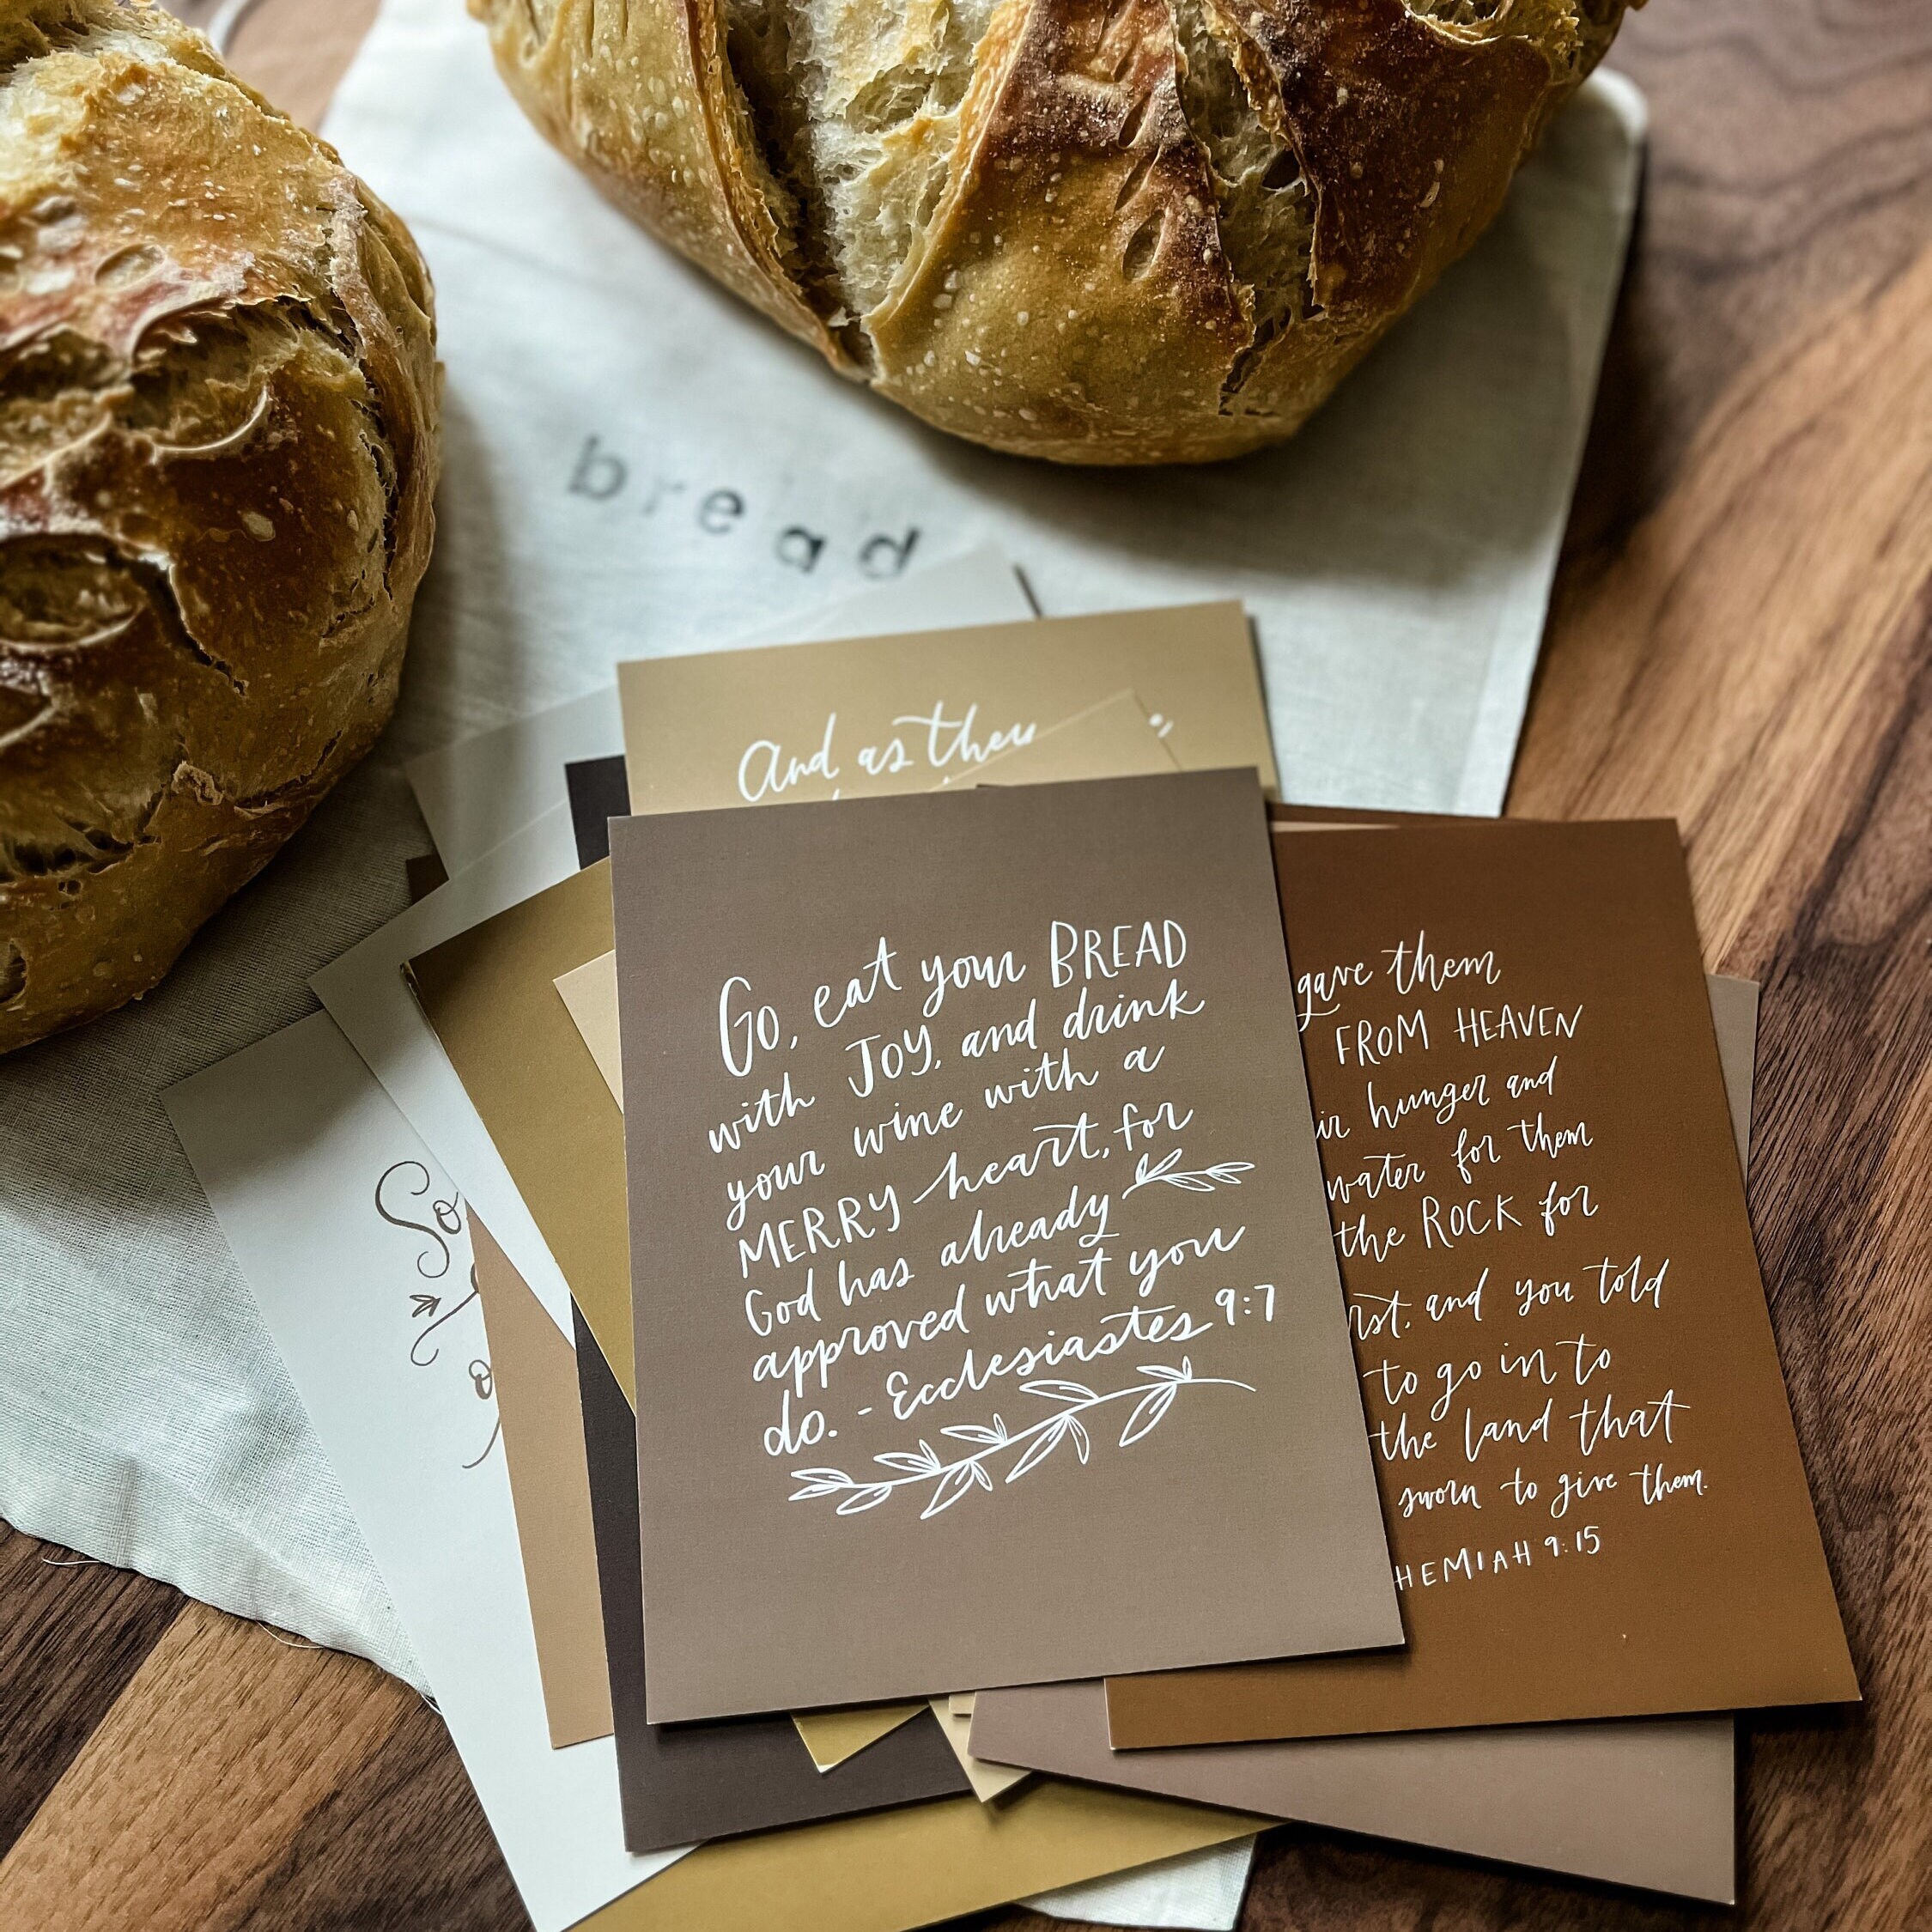 bread
And as they
Go, eat your BREAD
with JOY, and drink
your wine with a
MERRY heart, for
God has already
approved what you
do. - Ecclesiastes 9:7
gave them
FROM HEAVEN
hunger and
water for them
the ROCK for
and you told
to go in to
the land that
sworn to give them.
HEMIAH 9:15
So